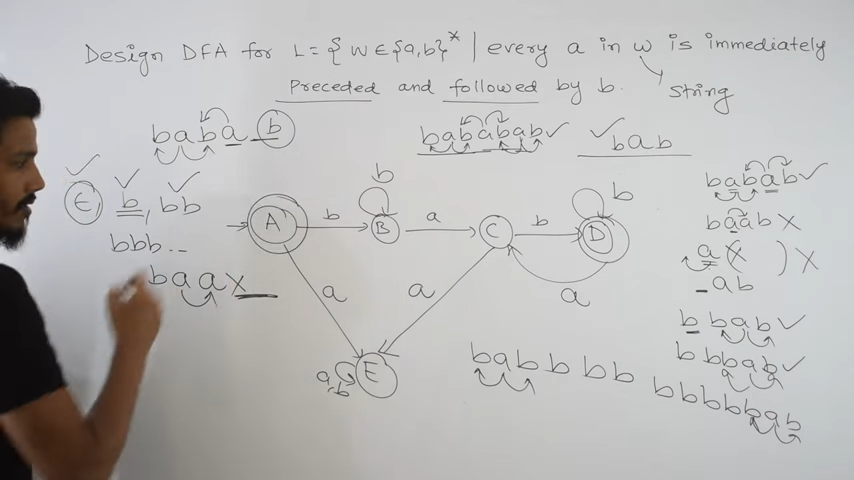 Design DFA for L = { W ∈ {a,b}* | every a in w is immediately
Preceded and followed by b.
String
babab
bababab✓
✓bab
ϵ, b, bb
bbb...
baax
babab✓
baabX
a( )X
_ab
bbab✓
bbbab✓
bbbbbab
babbbb
A
b
B
b
a
C
b
D
b
a
a
a
E
a,b